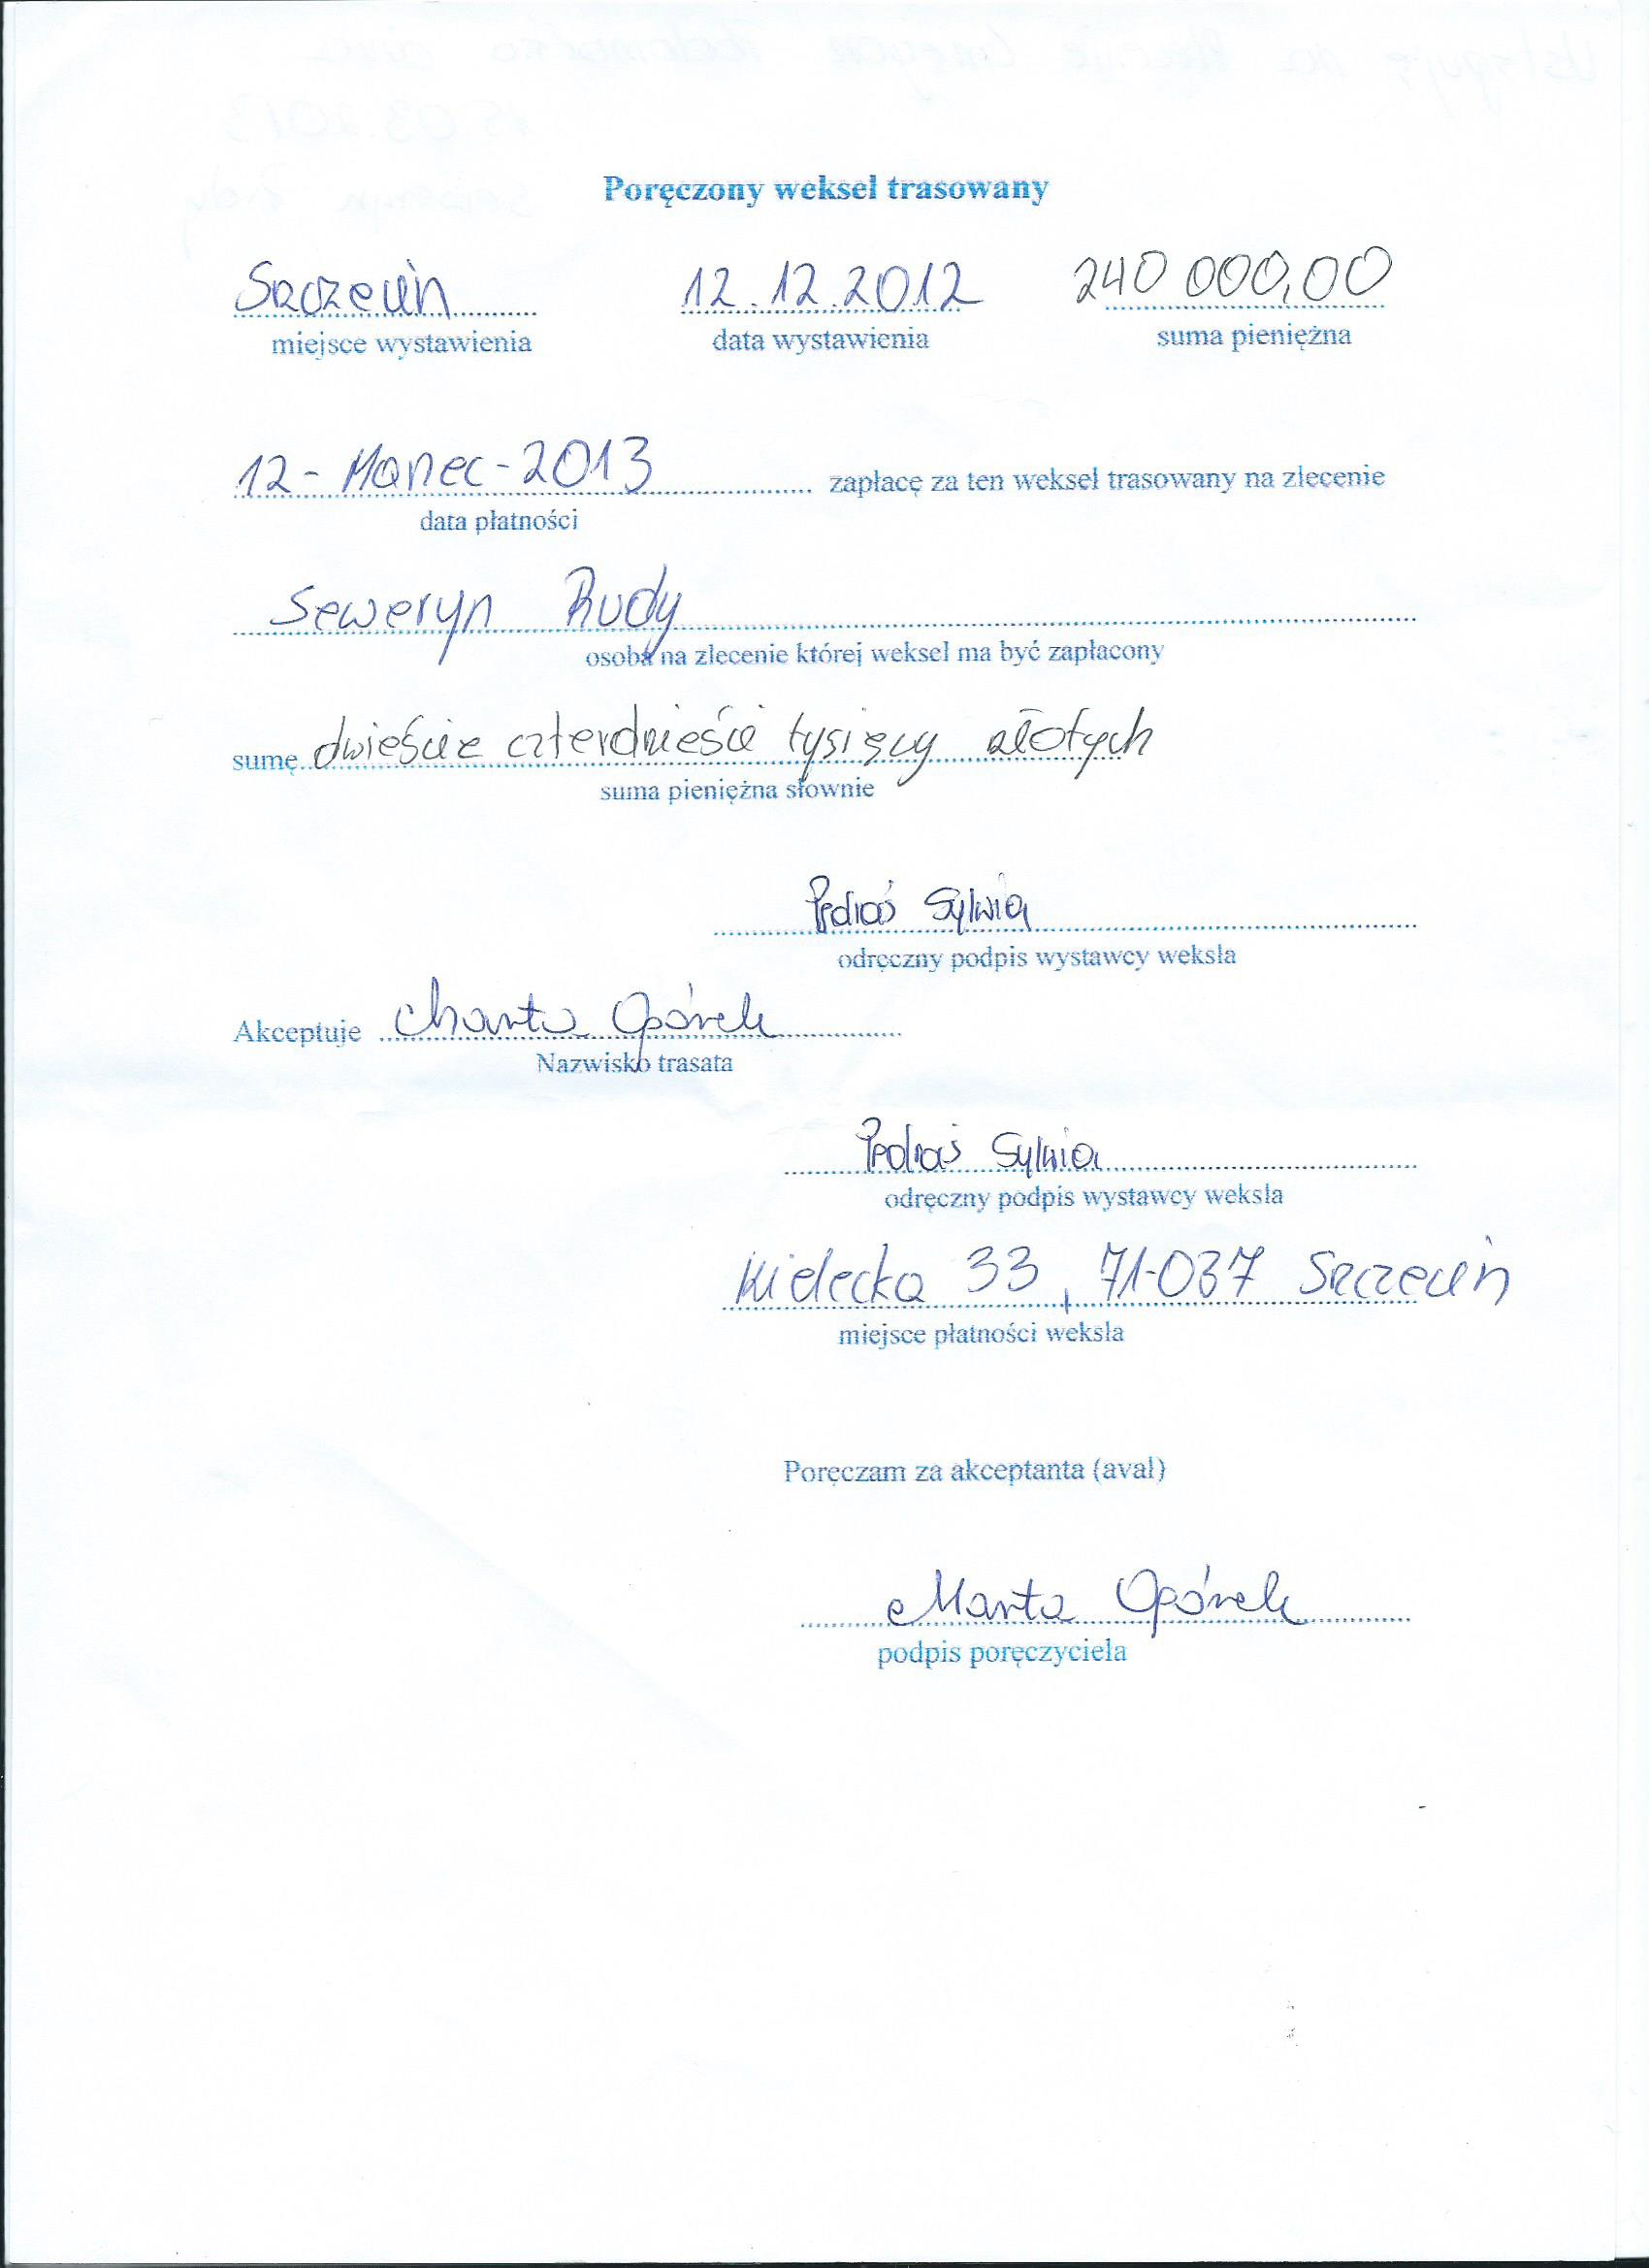 Poręczony weksel trasowany
Szczecin 12.12.2012 240 000,00
miejsce wystawienia data wystawienia suma pieniężna
12 - Marzec - 2013 zapłacę za ten weksel trasowany na zlecenie
data płatności
Seweryn Rudy
osoba na zlecenie której weksel ma być zapłacony
sumę dwieście czterdzieści tysięcy złotych
suma pieniężna słownie
Pędraś Sylwia
odręczny podpis wystawcy weksla
Akceptuje Marta Opórek
Nazwisko trasata
Pędraś Sylwia
odręczny podpis wystawcy weksla
Kielecka 33, 71-037 Szczecin
miejsce płatności weksla
Poręczam za akceptanta (aval)
Marta Opórek
podpis poręczyciela